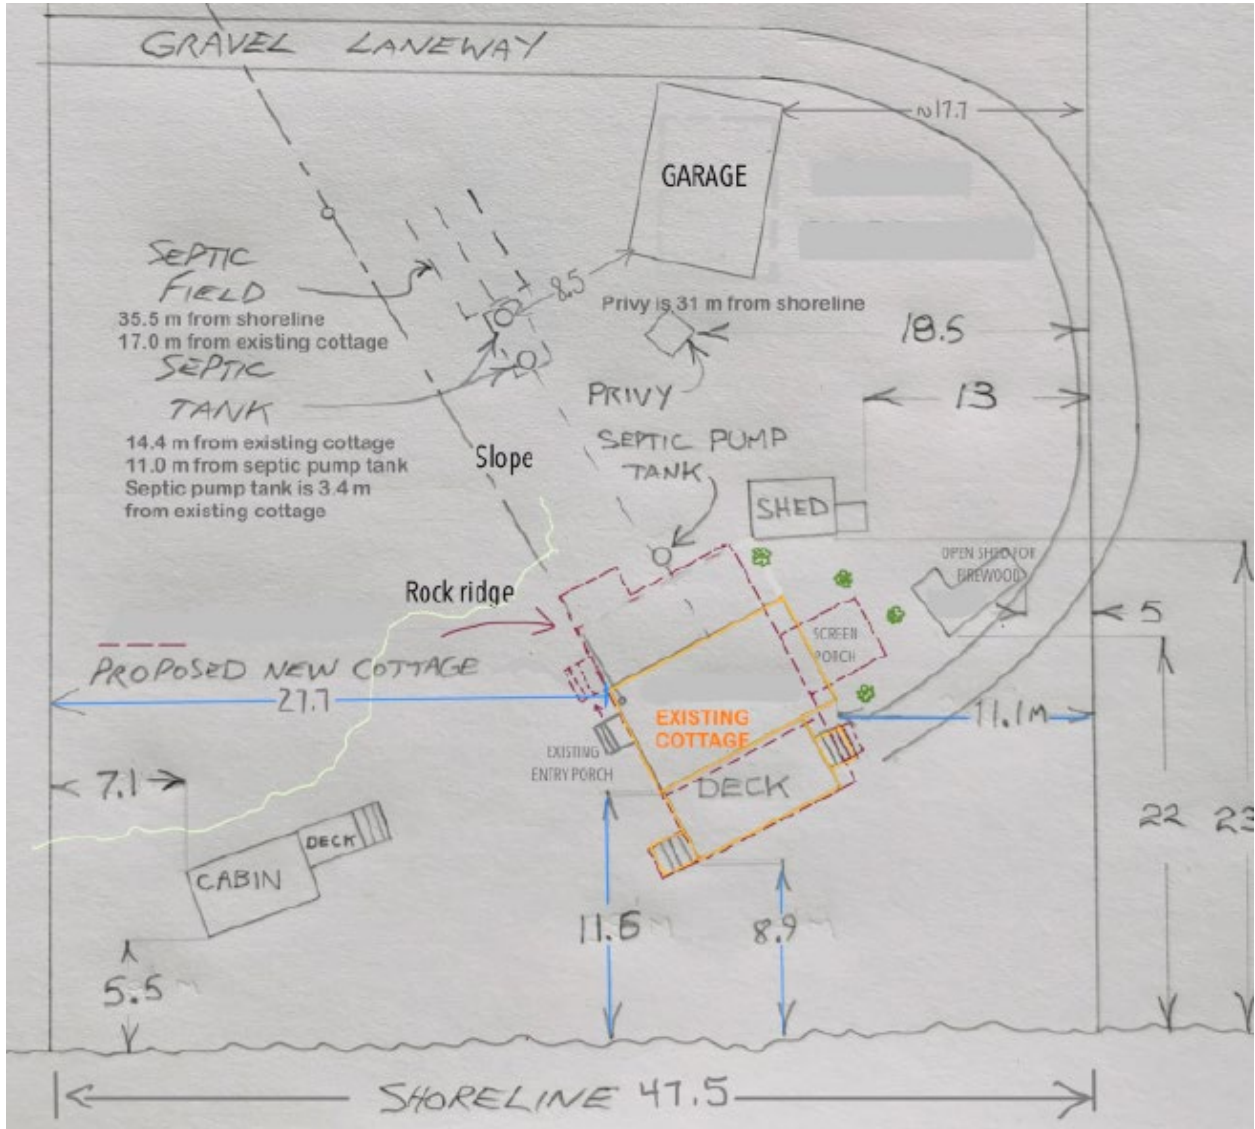 GRAVEL LANEWAY
~17.7
GARAGE
SEPTIC
FIELD
35.5 m from shoreline
17.0 m from existing cottage
8.5
Privy is 31 m from shoreline
18.5
SEPTIC
TANK
14.4 m from existing cottage
11.0 m from septic pump tank
Septic pump tank is 3.4 m
from existing cottage
PRIVY
13
SEPTIC PUMP
TANK
Slope
SHED
OPEN SHED FOR
FIREWOOD
Rock ridge
5
SCREEN
PORCH
PROPOSED NEW COTTAGE
27.7
EXISTING
COTTAGE
11.1M
EXISTING
ENTRY PORCH
DECK
7.1
22
23
DECK
CABIN
11.6
8.9 M
5.5 M
SHORELINE 47.5